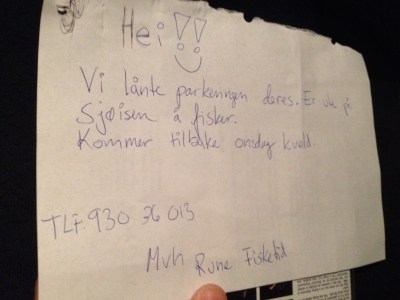 Hei!!
Vi lånte parkeringen deres. Er ute på
Sjøisen å fisker.
Kommer tilbake onsdag kveld.
TLF. 930 36 013
Mvh Rune Fisketid